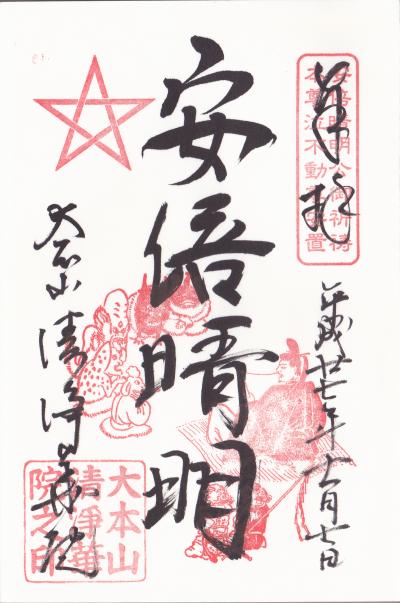 奉拝
安倍晴明公御祈祷
本尊泣不動尊安置
平成廿七年十一月七日
安倍晴明
大本山清浄華院
大本山
清浄華
院之印